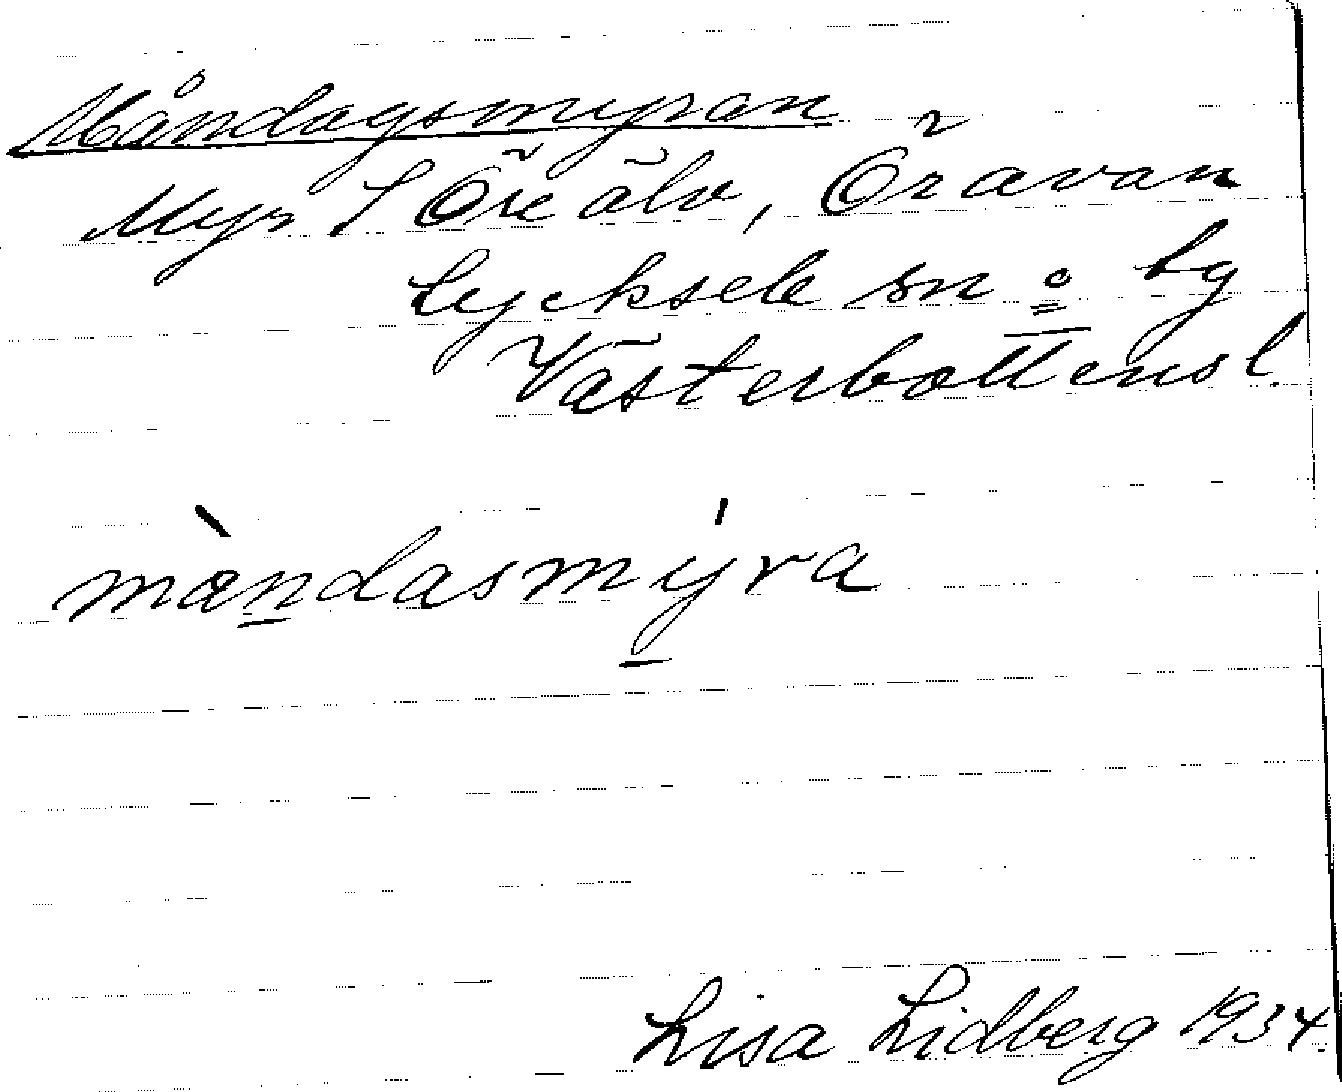 Måndagsmyran
Myr S Öre älv, Öravan
Lycksele sn o lg
Västerbottensl.
màndasmýra
Lisa Lidberg 1934.